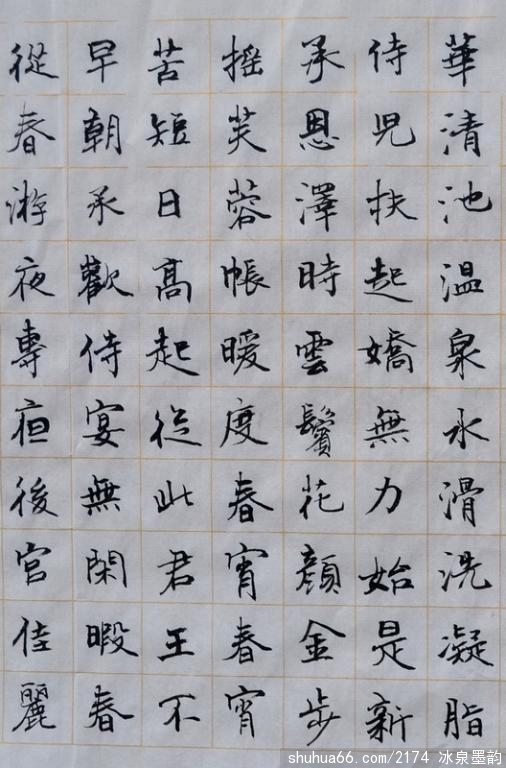 華清池温泉水滑洗凝脂
侍児扶起嬌無力始是新
承恩澤時雲鬢花顔金步
摇芙蓉帳暖度春宵春宵
苦短日高起從此君王不
早朝承歡侍宴無閑暇春
從春游夜專夜後宫佳麗
shuhua66.com/2174 冰泉墨韵